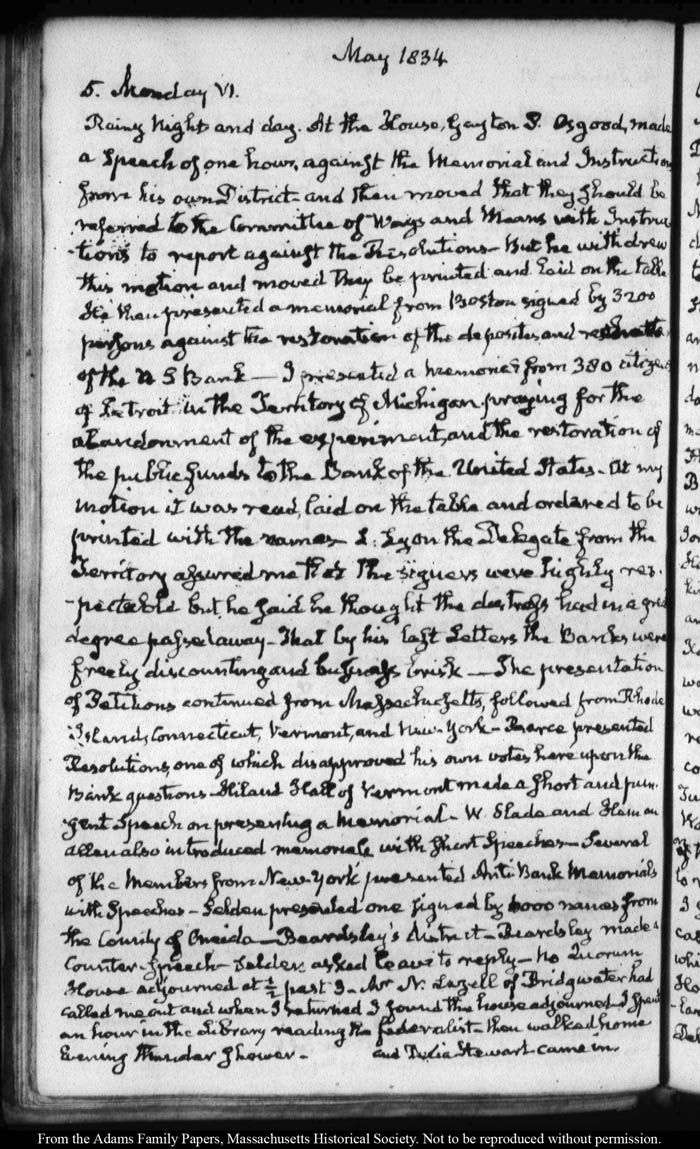 May 1834
5. Monday VI.
Rainy Night and day. At the House, Gayton P. Osgood, made
a Speech of one hour, against the Memorial and Instructions
from his own District and then moved that they should be
referred to the Committee of Ways and Means with Instruc
-tions to report against the Resolutions – But he withdrew
this motion and moved they be printed and laid on the table
He then presented a memorial from Boston signed by 3200
persons against the restoration of the deposites and
of the U S Bank — I presented a memorial from 380 citizens
of Detroit in the Territory of Michigan praying for the
abandonment of the experiment, and the restoration of
the public funds to the Bank of the United States – At my
motion it was read, laid on the table and ordered to be
printed with the names – L: Lyon the Delegate from the
Territory assured me that the signers were highly res-
-pectable but he said he thought the distress had in a great
degree passed away – That by his last Letters the Banks were
freely discounting and business brisk — The presentation
of Petitions continued from Massachusetts, followed from Rhode
Island, Connecticut, Vermont, and New-York – Pearce presented
Resolutions, one of which disapproved his own votes here upon the
Bank questions – Hiland Hall of Vermont made a short and pun-
gent Speech on presenting a Memorial – W. Slade and Heman
Allen also introduced memorials with short Speeches – Several
of the Members from New-York presented Anti Bank Memorials
with Speeches – Selden presented one signed by names from
the County of Oneida – Beardsley's district – Beardsley made a
Counter-Speech – Selden asked leave to reply – No Quorum
House adjourned at ½ past 3 – Mr N. Lazell of Bridgwater had
called me out and when I returned I found the house adjourned – I spent
an hour in the Library reading the federalist – then walked home
Evening thunder shower – and Delia Stewart came in
From the Adams Family Papers, Massachusetts Historical Society. Not to be reproduced without permission.